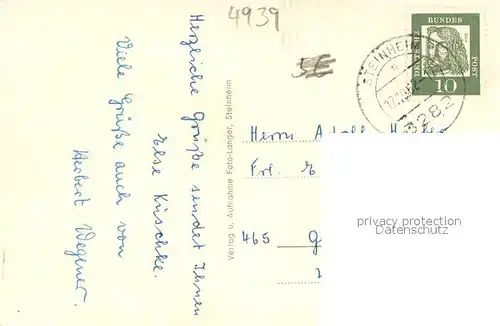 4939
Herzliche Grüße sendet Ihnen
Else Kuschke.
Viele Grüße auch von
Herbert Wegener.
Verlag u. Aufnahme Foto-Langer, Steinheim
DEUTSCHE
BUNDES
POST
10
STEINHEIM
3282
Herrn Adolf
Frl. E
465 G
privacy protection
Datenschutz